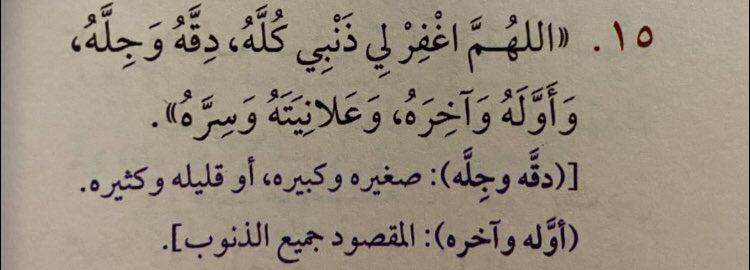 ١٥. «اللهُمَّ اغْفِرْ لِي ذَنْبِي كُلَّهُ، دِقَّهُ وَجِلَّهُ،
وَأَوَّلَهُ وَآخِرَهُ، وَعَلانِيَتَهُ وَسِرَّهُ».
[(دقَّه وجِلَّه): صغيره وكبيره، أو قليله وكثيره.
(أوَّله وآخره): المقصود جميع الذنوب].